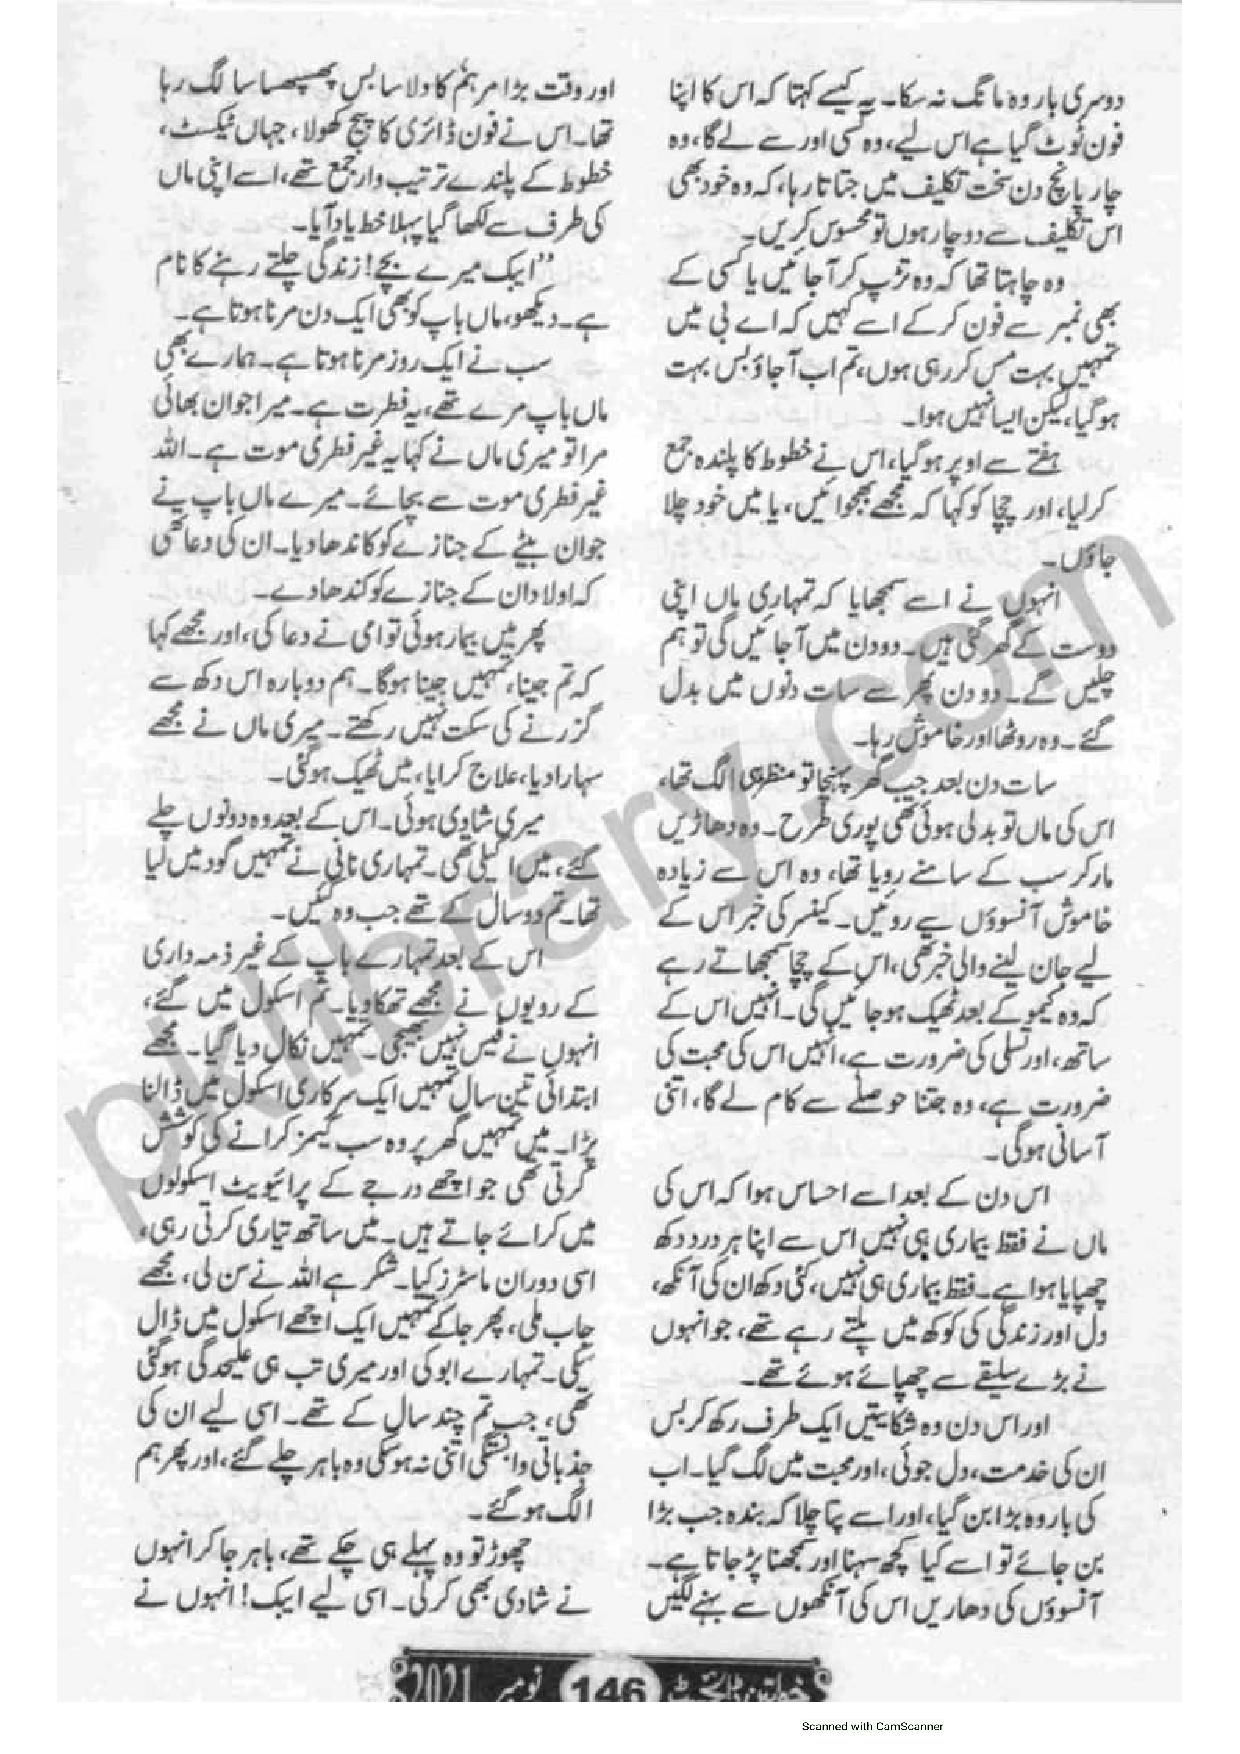 دوسری بار وہ مانگ نہ سکا۔ یہ کیسے کہتا کہ اس کا اپنا
فون ٹوٹ گیا ہے اس لیے، وہ کسی اور سے لے گا، وہ
چار پانچ دن سخت تکلیف میں جتاتا رہا، کہ وہ خود بھی
اس تکلیف سے دوچار ہوں تو محسوس کریں۔
وہ چاہتا تھا کہ وہ تڑپ کر آجائیں یا کسی کے
بھی نمبر سے فون کر کے اسے کہیں کہ اے بی میں
تمہیں بہت مس کر رہی ہوں، تم اب آجاؤ بس بہت
ہو گیا، لیکن ایسا نہیں ہوا۔
ہفتے سے اوپر ہو گیا، اس نے خطوط کا پلندہ جمع
کر لیا، اور چچا کو کہا کہ مجھے بھجوائیں، یا میں خود چلا
جاؤں۔
انہوں نے اسے سمجھایا کہ تمہاری ماں اپنی
دوست کے گھر گئی ہیں۔ دو دن میں آجائیں گی تو ہم
چلیں گے۔ دو دن پھر سے سات دنوں میں بدل
گئے۔ وہ روٹھا اور خاموش رہا۔
سات دن بعد جب گھر پہنچا تو منظر ہی الگ تھا،
اس کی ماں تو بدلی ہوئی تھی پوری طرح۔ وہ دھاڑیں
مار کر سب کے سامنے رویا تھا، وہ اس سے زیادہ
خاموش آنسوؤں سے روئیں۔ کینسر کی خبر اس کے
لیے جان لینے والی خبر تھی، اس کے چچا سمجھاتے رہے
کہ وہ کیمو کے بعد ٹھیک ہو جائیں گی۔ انہیں اس کے
ساتھ، اور تسلی کی ضرورت ہے، انہیں اس کی محبت کی
ضرورت ہے، وہ جتنا حوصلے سے کام لے گا، اتنی
آسانی ہوگی۔
اس دن کے بعد اسے احساس ہوا کہ اس کی
ماں نے فقط بیماری ہی نہیں اس سے اپنا ہر درد دکھ
چھپایا ہوا ہے۔ فقط بیماری ہی نہیں، کئی دکھ ان کی آنکھ،
دل اور زندگی کی کوکھ میں پلتے رہے تھے، جو انہوں
نے بڑے سلیقے سے چھپائے ہوئے تھے۔
اور اس دن وہ شکایتیں ایک طرف رکھ کر بس
ان کی خدمت، دل جوئی، اور محبت میں لگ گیا۔ اب
کی بار وہ بڑا بن گیا، اور اسے پتا چلا کہ بندہ جب بڑا
بن جائے تو اسے کیا کچھ سہنا اور سمجھنا پڑ جاتا ہے۔
آنسوؤں کی دھاریں اس کی آنکھوں سے بہنے لگیں
اور وقت بڑا مرہم کا دلاسا بس پھسپھسا سا لگ رہا
تھا۔ اس نے فون ڈائری کا پیج کھولا، جہاں ٹیکسٹ،
خطوط کے پلندے ترتیب وار جمع تھے، اسے اپنی ماں
کی طرف سے لکھا گیا پہلا خط یاد آیا۔
”ایبک میرے بچے! زندگی چلتے رہنے کا نام
ہے۔ دیکھو، ماں باپ کو بھی ایک دن مرنا ہوتا ہے۔
سب نے ایک روز مرنا ہوتا ہے۔ ہمارے بھی
ماں باپ مرے تھے، یہ فطرت ہے۔ میرا جوان بھائی
مرا تو میری ماں نے کہا یہ غیر فطری موت ہے۔ اللہ
غیر فطری موت سے بچائے۔ میرے ماں باپ نے
جوان بیٹے کے جنازے کو کاندھا دیا۔ ان کی دعا تھی
کہ اولاد ان کے جنازے کو کندھا دے۔
پھر میں بیمار ہوئی تو امی نے دعا کی، اور مجھے کہا
کہ تم جینا، تمہیں جینا ہوگا۔ ہم دوبارہ اس دکھ سے
گزرنے کی سکت نہیں رکھتے۔ میری ماں نے مجھے
سہارا دیا، علاج کرایا، میں ٹھیک ہوگئی۔
میری شادی ہوئی۔ اس کے بعد وہ دونوں چلے
گئے، میں اکیلی تھی۔ تمہاری نانی نے تمہیں گود میں لیا
تھا۔ تم دو سال کے تھے جب وہ گئیں۔
اس کے بعد تمہارے باپ کے غیر ذمہ داری
کے رویوں نے مجھے تھکا دیا۔ تم اسکول میں گئے،
انہوں نے فیس نہیں بھیجی۔ تمہیں نکال دیا گیا۔ مجھے
ابتدائی تین سال تمہیں ایک سرکاری اسکول میں ڈالنا
پڑا۔ میں تمہیں گھر پر وہ سب گیمز کرانے کی کوشش
کرتی تھی جو اچھے درجے کے پرائیویٹ اسکولوں
میں کرائے جاتے ہیں۔ میں ساتھ تیاری کرتی رہی،
اسی دوران ماسٹرز کیا۔ شکر ہے اللہ نے سن لی، مجھے
جاب ملی، پھر جا کے تمہیں ایک اچھے اسکول میں ڈال
سکی۔ تمہارے ابو کی اور میری تب ہی علیحدگی ہوگئی
تھی، جب تم چند سال کے تھے۔ اسی لیے ان کی
جذباتی وابستگی اتنی نہ ہوسکی وہ باہر چلے گئے، اور پھر ہم
الگ ہو گئے۔
چھوڑ تو وہ پہلے ہی چکے تھے، باہر جا کر انہوں
نے شادی بھی کر لی۔ اسی لیے ایبک! انہوں نے
خواتین ڈائجسٹ 146 نومبر 2021
pklibrary.com
Scanned with CamScanner